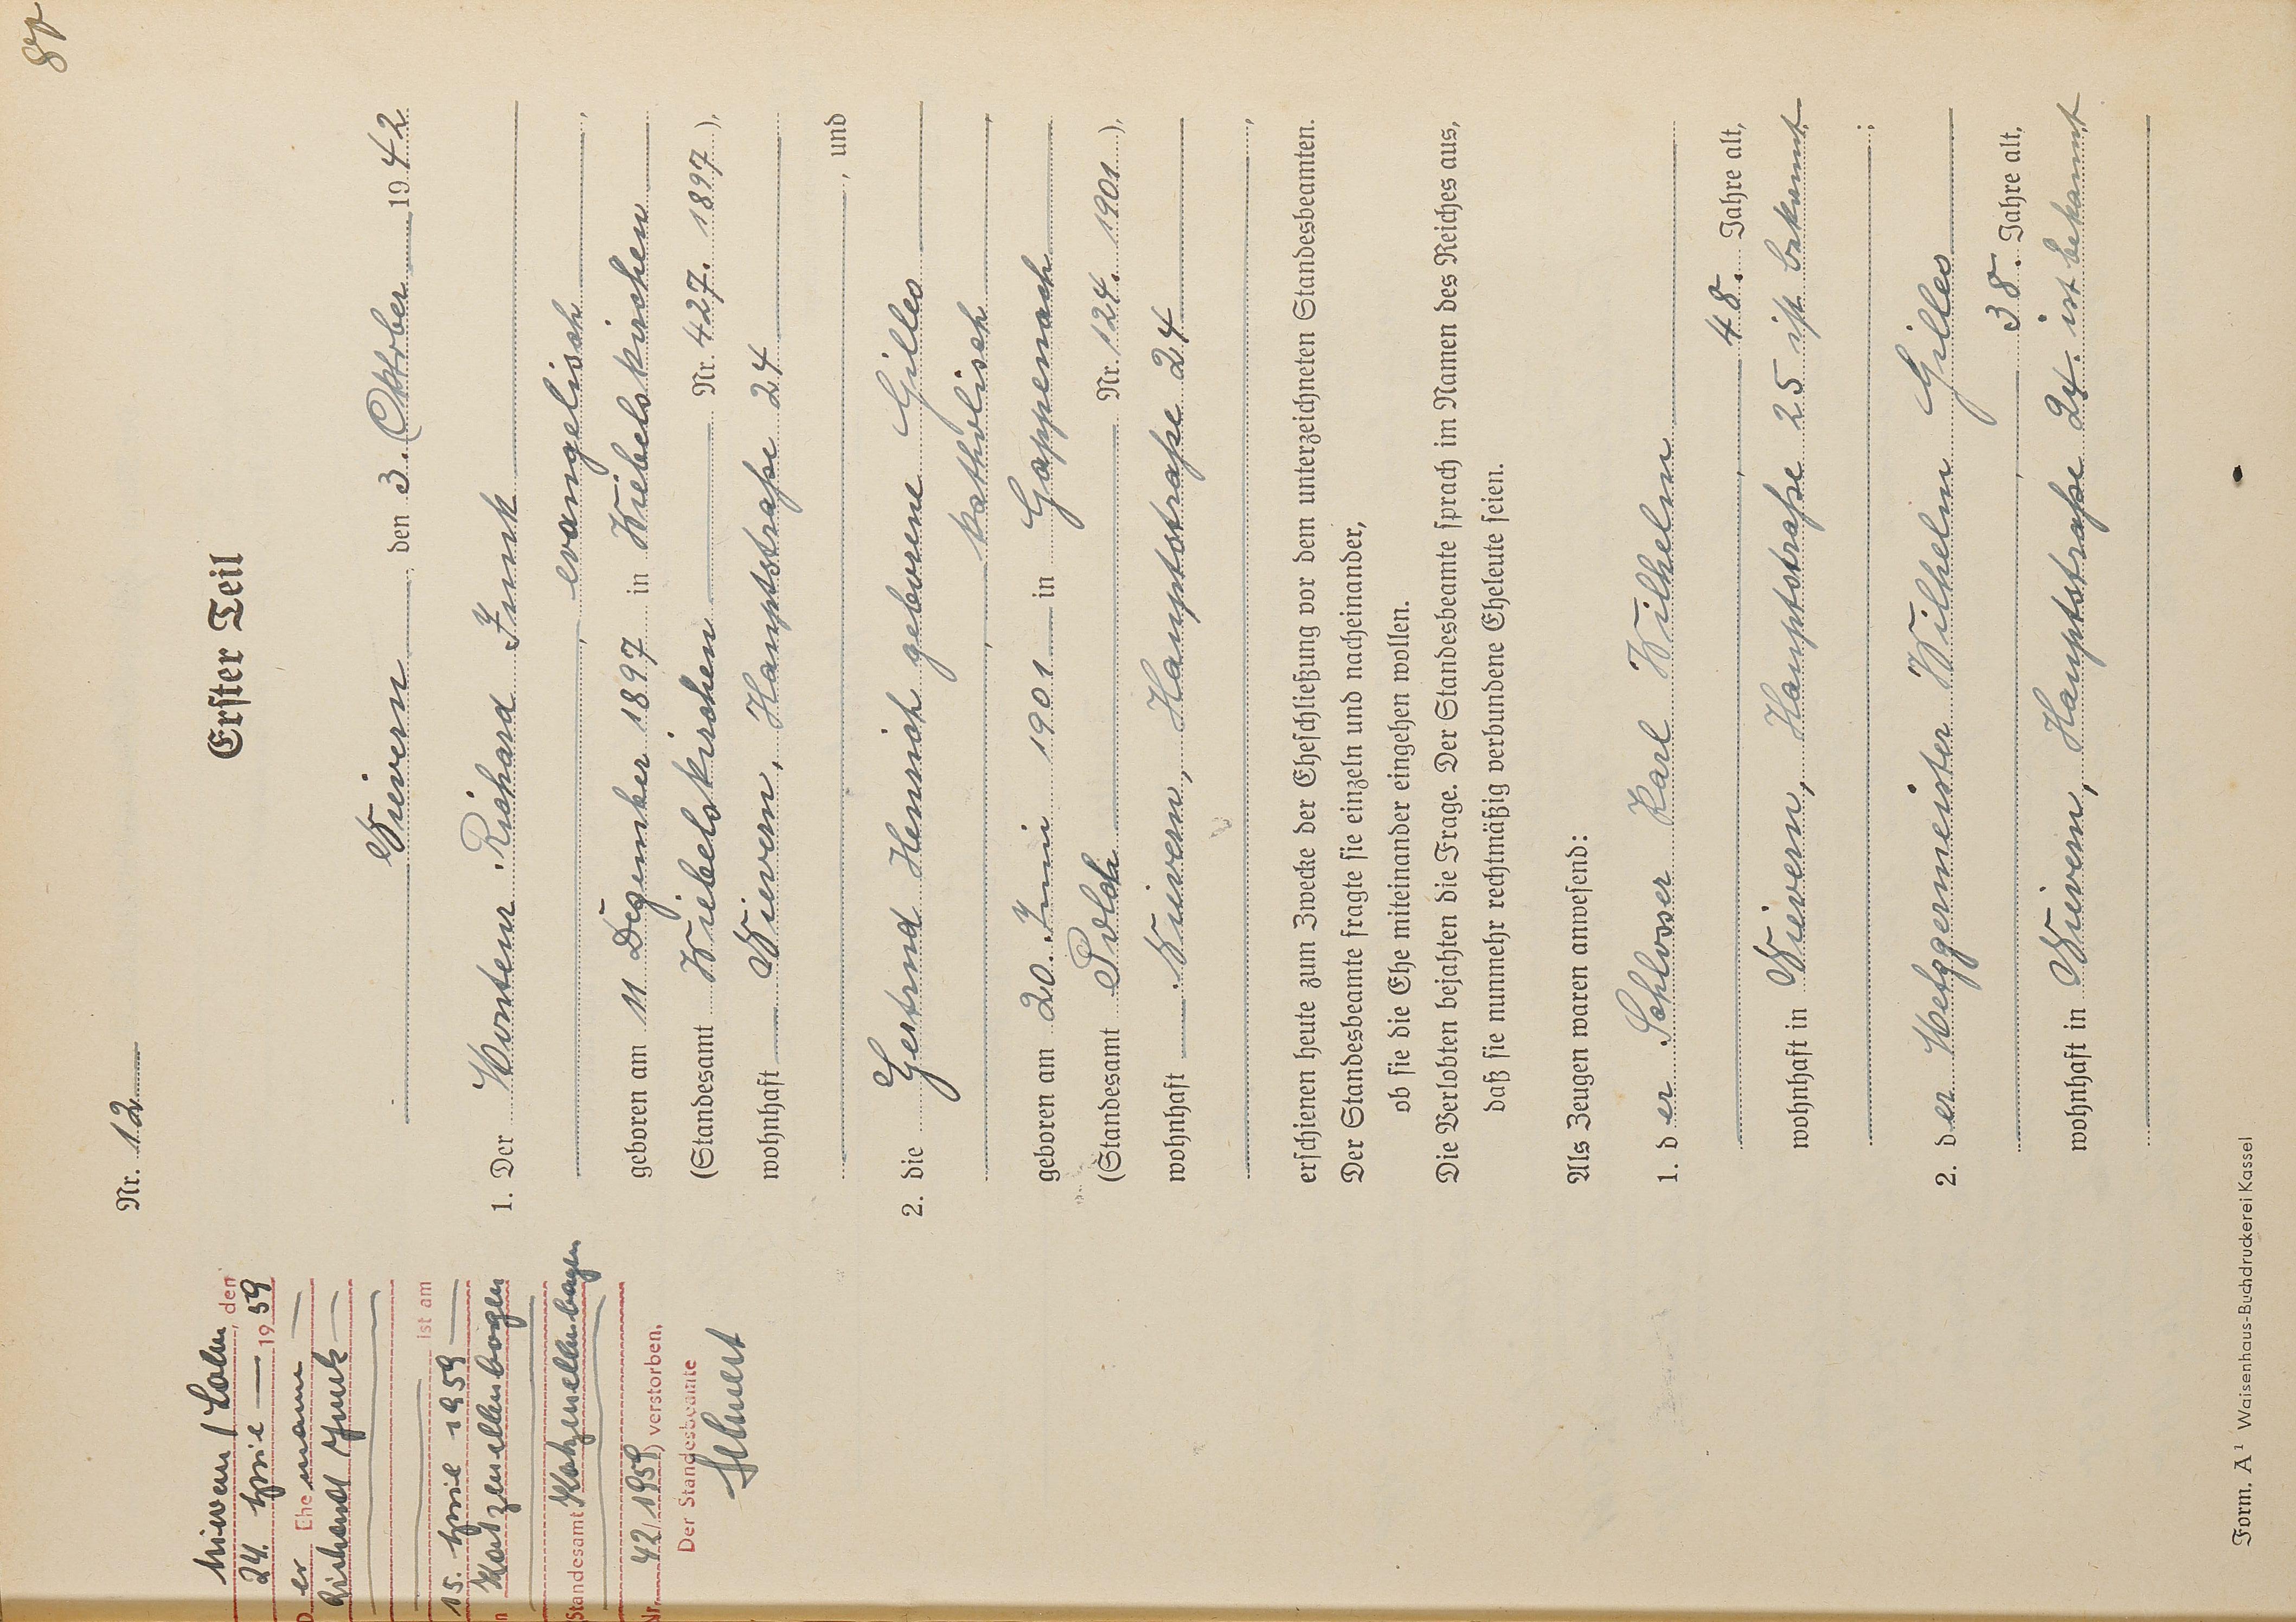 87
Nr. 12
Erster Teil
Nievern, den 3. Oktober 1942
1. Der Monteur Richard Funk
, evangelisch,
geboren am 11. Dezember 1897 in Wiebelskirchen
(Standesamt Wiebelskirchen Nr. 427. 1897),
wohnhaft Nievern, Hauptstraße 24
, und
2. die Gertrud Henrich geborene Gilles
, katholisch,
geboren am 20. Juni 1901 in Gappenach
(Standesamt Polch Nr. 124. 1901),
wohnhaft Nievern, Hauptstraße 24
,
erschienen heute zum Zwecke der Eheschließung vor dem unterzeichneten Standesbeamten.
Der Standesbeamte fragte sie einzeln und nacheinander,
ob sie die Ehe miteinander eingehen wollen.
Die Verlobten bejahten die Frage. Der Standesbeamte sprach im Namen des Reiches aus,
daß sie nunmehr rechtmäßig verbundene Eheleute seien.
Als Zeugen waren anwesend:
1. der Schlosser Karl Wilhelm
, 48. Jahre alt,
wohnhaft in Nievern, Hauptstraße 25 ist bekannt
;
2. der Metzgermeister Wilhelm Gilles
, 38. Jahre alt,
wohnhaft in Nievern, Hauptstraße 24. ist bekannt
Nievern / Lahn, den
24. April 1959
Der Ehemann
Richard Funk
ist am
15. April 1959
in Katzenellenbogen
Standesamt Katzenellenbogen
Nr. 42/1959) verstorben.
Der Standesbeamte
Form. A¹ Waisenhaus-Buchdruckerei Kassel